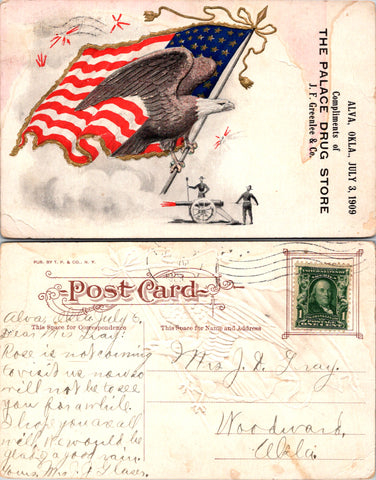 ALVA, OKLA., JULY 3, 1909
Compliments of
THE PALACE DRUG STORE
J. F. Greenlee & Co.
PUB. BY T. P. & CO., N. Y.
Post Card
This Space for Correspondence
This Space for Name and Address
UNITED STATES OF AMERICA
1 ONE CENT 1
Alva, Okla. July
Dear Mrs Gray:
Rose is not coming
to visit us now so
will not be to see
you for awhile.
I hope you are all
well. We would be
glad of a good rain.
Yours, Mrs. Glaser.
Mrs J. D. Gray.
Woodward,
Okla.